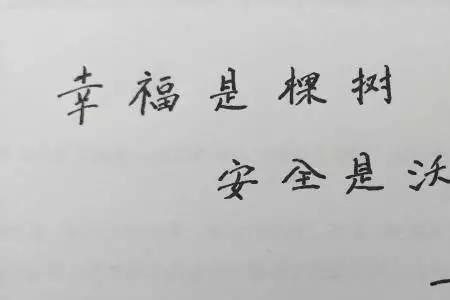 幸福是棵树
安全是沃